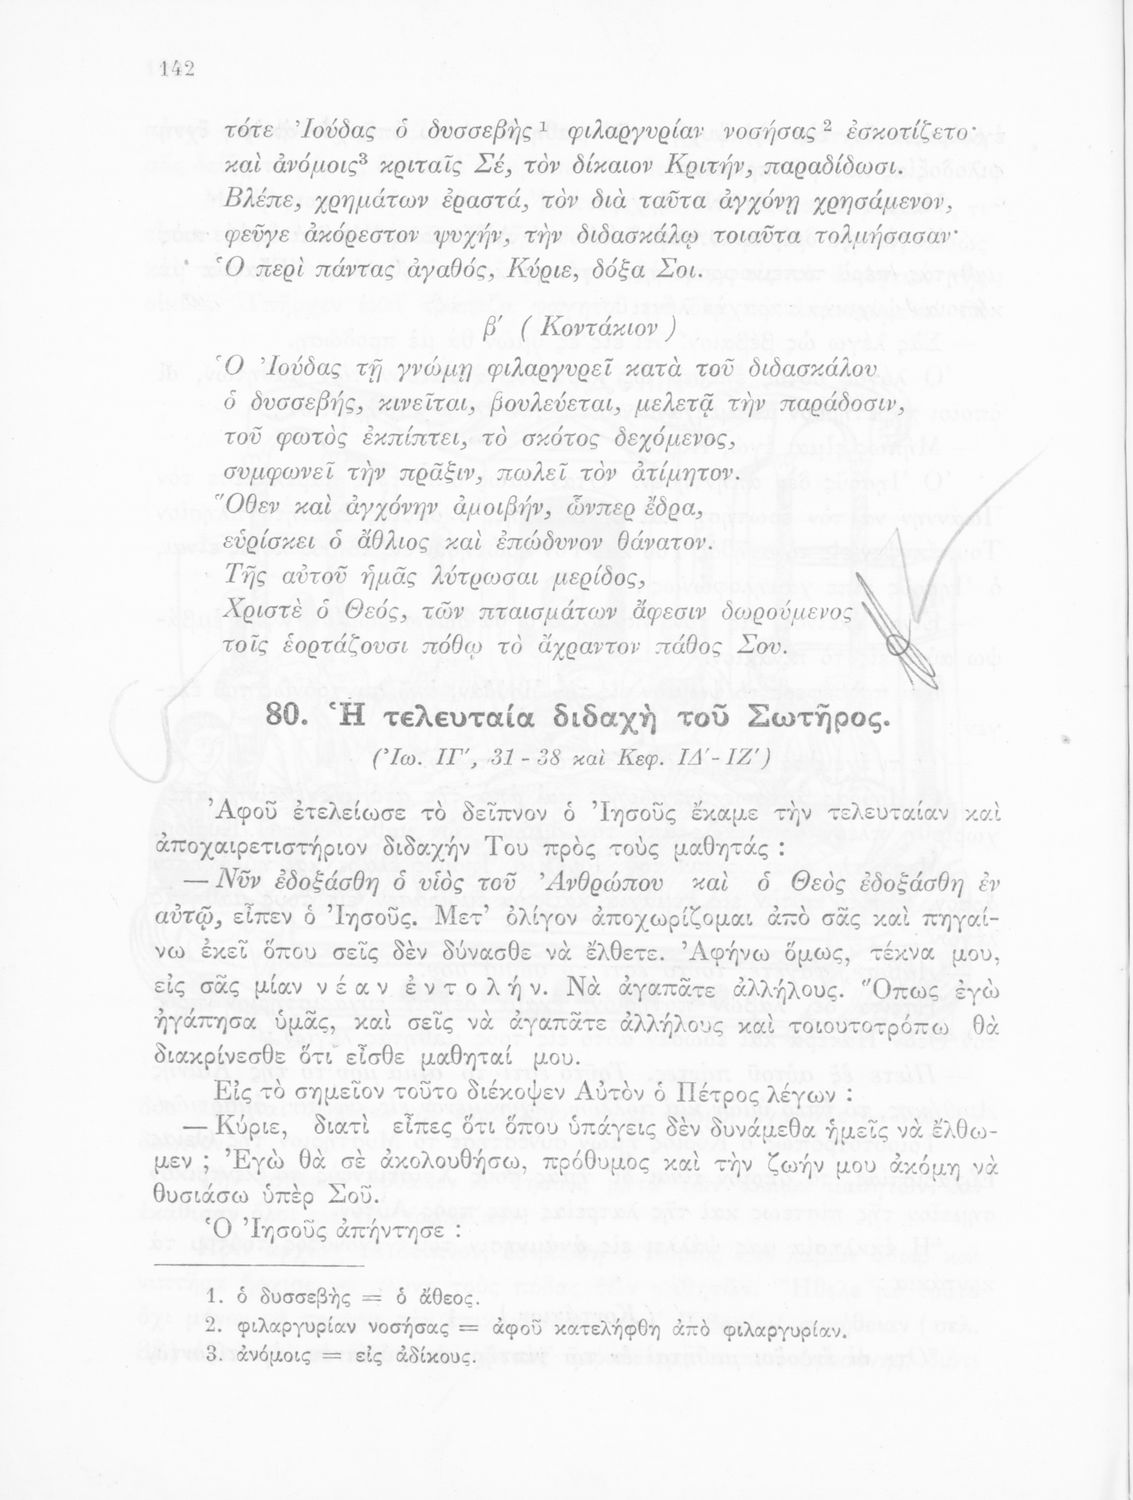 142
τότε Ἰούδας ὁ δυσσεβὴς ¹ φιλαργυρίαν νοσήσας ² ἐσκοτίζετο·
καὶ ἀνόμοις³ κριταῖς Σέ, τὸν δίκαιον Κριτήν, παραδίδωσι.
Βλέπε, χρημάτων ἐραστά, τὸν διὰ ταῦτα ἀγχόνῃ χρησάμενον,
φεῦγε ἀκόρεστον ψυχήν, τὴν διδασκάλῳ τοιαῦτα τολμήσασαν·
Ὁ περὶ πάντας ἀγαθός, Κύριε, δόξα Σοι.
β′ ( Κοντάκιον )
Ὁ Ἰούδας τῇ γνώμῃ φιλαργυρεῖ κατὰ τοῦ διδασκάλου
ὁ δυσσεβής, κινεῖται, βουλεύεται, μελετᾷ τὴν παράδοσιν,
τοῦ φωτὸς ἐκπίπτει, τὸ σκότος δεχόμενος,
συμφωνεῖ τὴν πρᾶξιν, πωλεῖ τὸν ἀτίμητον.
Ὅθεν καὶ ἀγχόνην ἀμοιβήν, ὧνπερ ἔδρα,
εὑρίσκει ὁ ἄθλιος καὶ ἐπώδυνον θάνατον.
Τῆς αὐτοῦ ἡμᾶς λύτρωσαι μερίδος,
Χριστὲ ὁ Θεός, τῶν πταισμάτων ἄφεσιν δωρούμενος
τοῖς ἑορτάζουσι πόθῳ τὸ ἄχραντον πάθος Σου.
80. Ἡ τελευταία διδαχὴ τοῦ Σωτῆρος.
(Ἰω. ΙΓ′, 31 - 38 καὶ Κεφ. ΙΔ′ - ΙΖ′)
Ἀφοῦ ἐτελείωσε τὸ δεῖπνον ὁ Ἰησοῦς ἔκαμε τὴν τελευταίαν καὶ
ἀποχαιρετιστήριον διδαχήν Του πρὸς τοὺς μαθητάς :
— Νῦν ἐδοξάσθη ὁ υἱὸς τοῦ Ἀνθρώπου καὶ ὁ Θεὸς ἐδοξάσθη ἐν
αὐτῷ, εἶπεν ὁ Ἰησοῦς. Μετ' ὀλίγον ἀποχωρίζομαι ἀπὸ σᾶς καὶ πηγαί-
νω ἐκεῖ ὅπου σεῖς δὲν δύνασθε νὰ ἔλθετε. Ἀφήνω ὅμως, τέκνα μου,
εἰς σᾶς μίαν ν έ α ν ἐ ν τ ο λ ή ν. Νὰ ἀγαπᾶτε ἀλλήλους. Ὅπως ἐγὼ
ἠγάπησα ὑμᾶς, καὶ σεῖς νὰ ἀγαπᾶτε ἀλλήλους καὶ τοιουτοτρόπω θὰ
διακρίνεσθε ὅτι εἶσθε μαθηταί μου.
Εἰς τὸ σημεῖον τοῦτο διέκοψεν Αὐτὸν ὁ Πέτρος λέγων :
— Κύριε, διατὶ εἶπες ὅτι ὅπου ὑπάγεις δὲν δυνάμεθα ἡμεῖς νὰ ἔλθω-
μεν ; Ἐγὼ θὰ σὲ ἀκολουθήσω, πρόθυμος καὶ τὴν ζωήν μου ἀκόμη νὰ
θυσιάσω ὑπὲρ Σοῦ.
Ὁ Ἰησοῦς ἀπήντησε :
1. ὁ δυσσεβὴς = ὁ ἄθεος.
2. φιλαργυρίαν νοσήσας = ἀφοῦ κατελήφθη ἀπὸ φιλαργυρίαν.
3. ἀνόμοις = εἰς ἀδίκους.